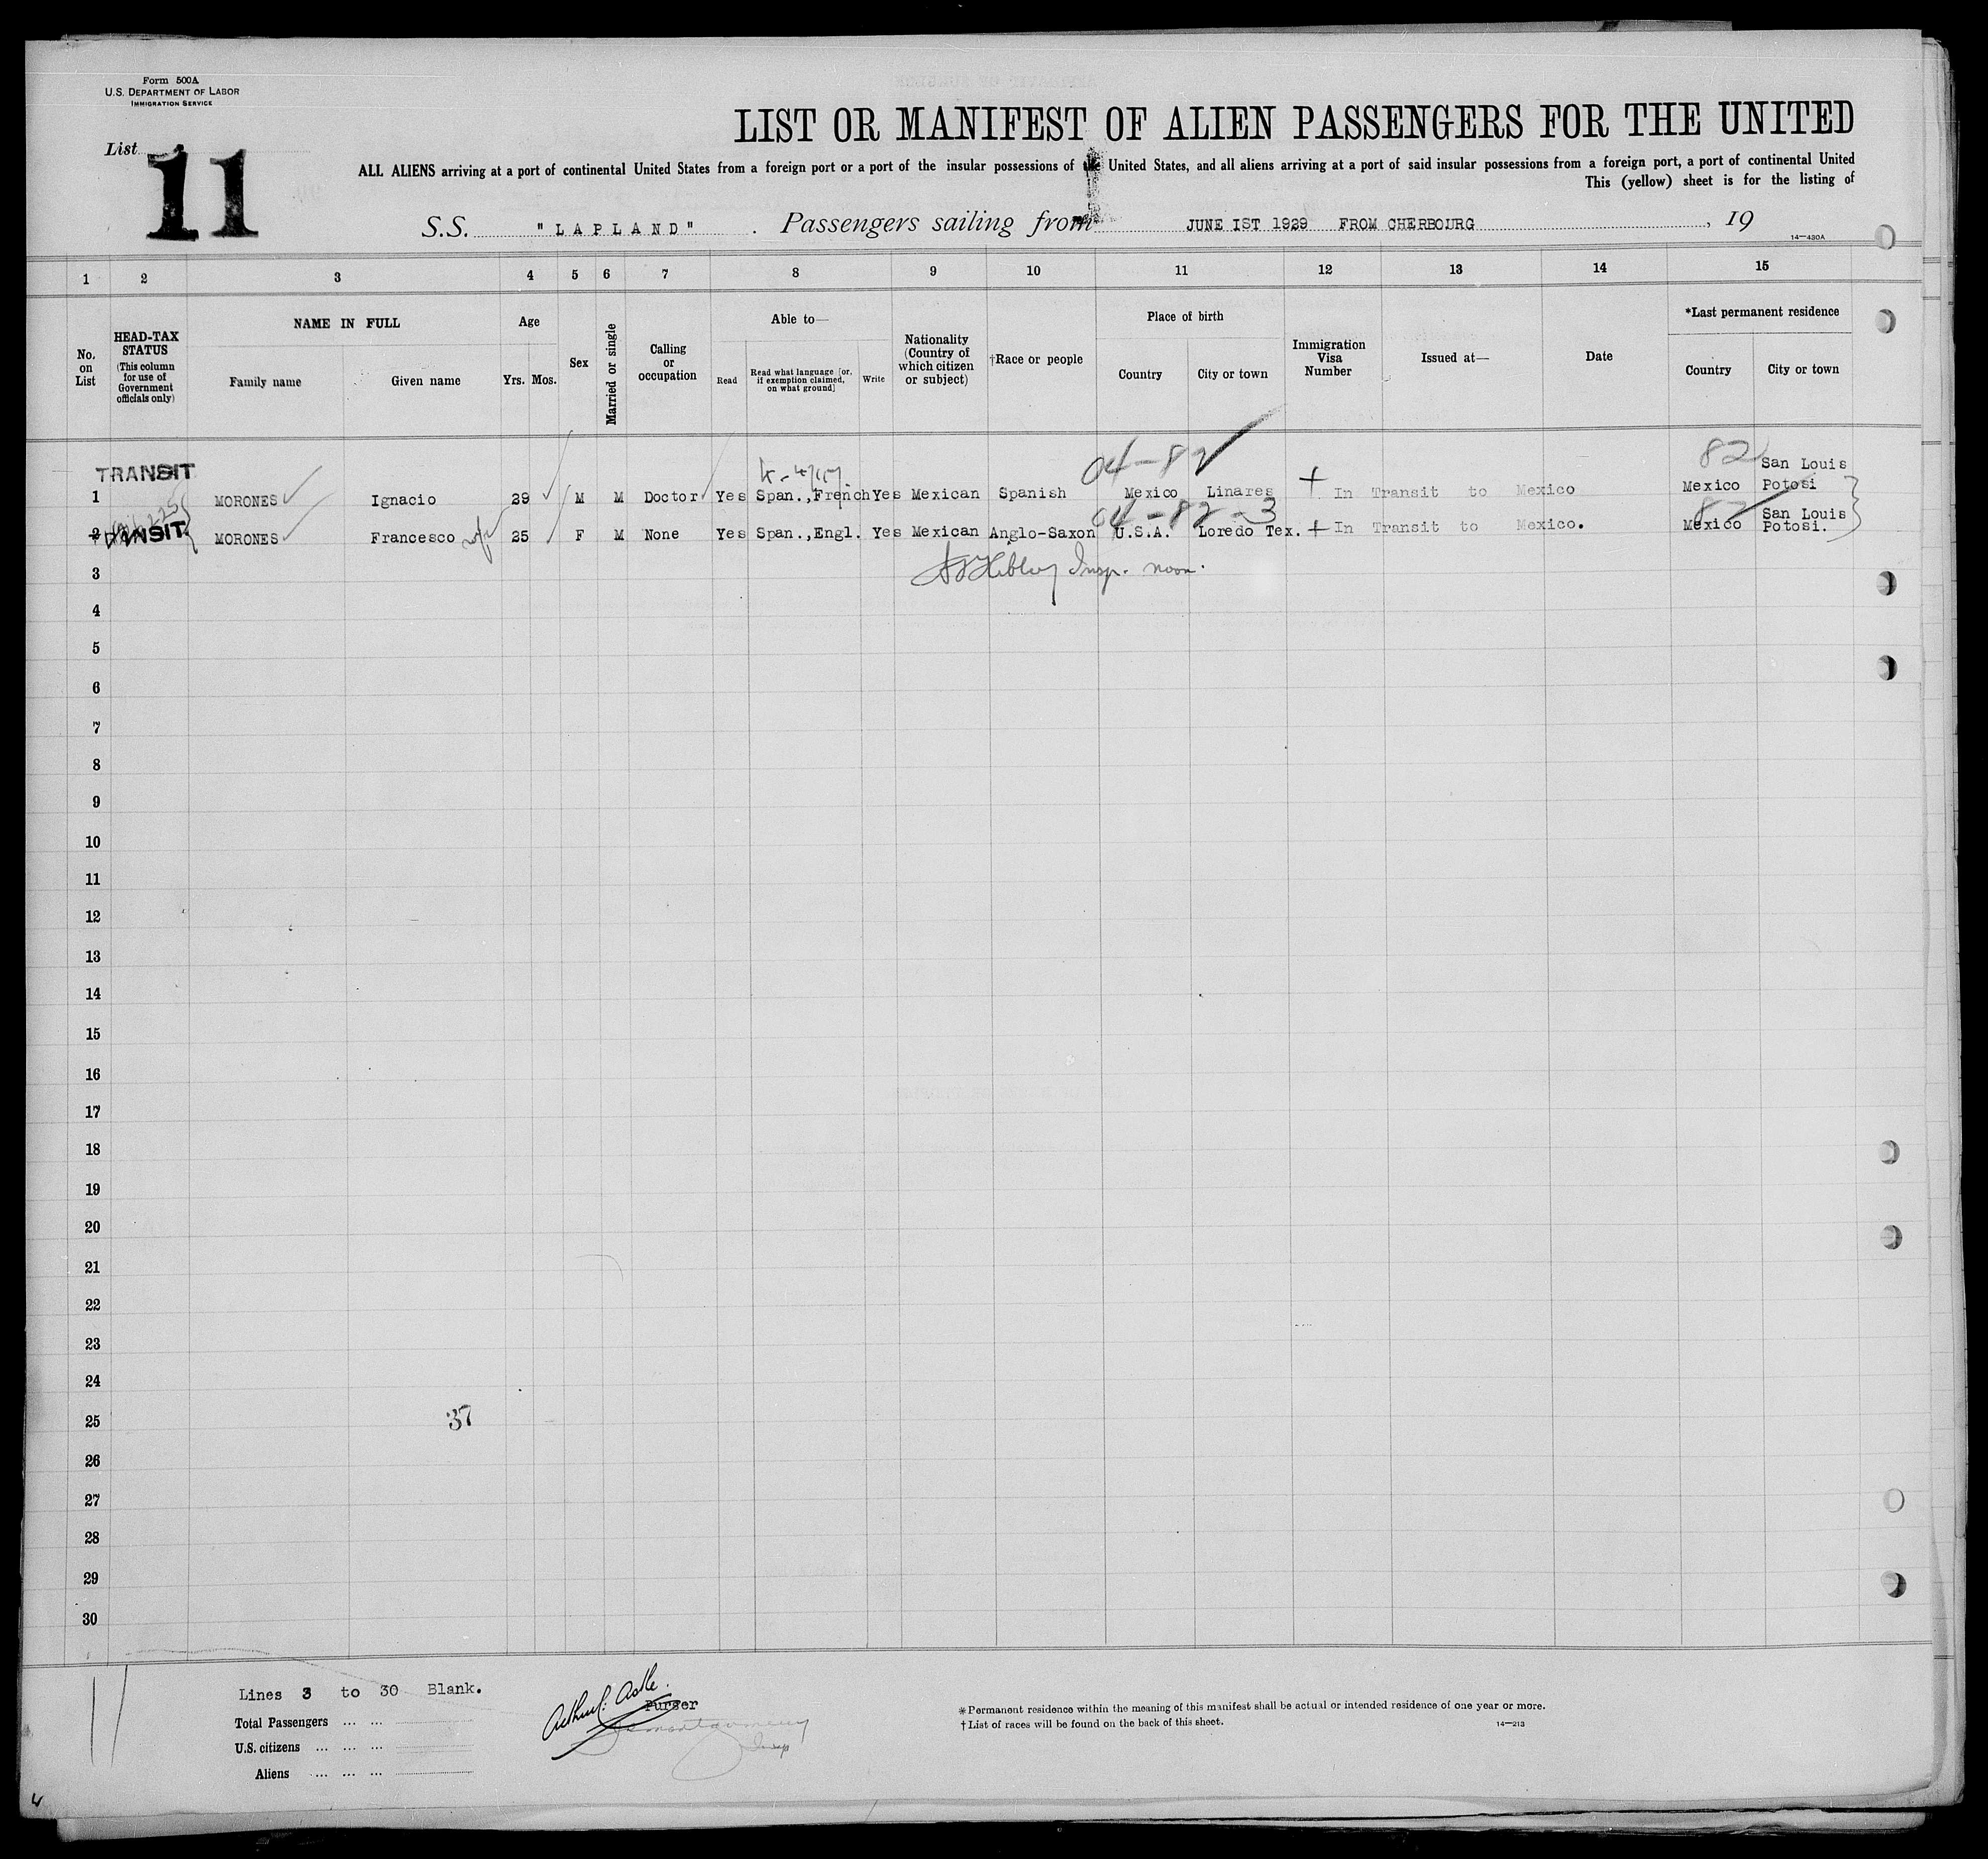 Form 500A
U.S. DEPARTMENT OF LABOR
IMMIGRATION SERVICE
List 11
LIST OR MANIFEST OF ALIEN PASSENGERS FOR THE UNITED
ALL ALIENS arriving at a port of continental United States from a foreign port or a port of the insular possessions of the United States, and all aliens arriving at a port of said insular possessions from a foreign port, a port of continental United
This (yellow) sheet is for the listing of
S.S. "LAPLAND" . Passengers sailing from JUNE IST 1929 FROM CHERBOURG , 19
14—430A
1 2 3 4 5 6 7 8 9 10 11 12 13 14 15
No. on List
HEAD-TAX STATUS (This column for use of Government officials only)
NAME IN FULL
Family name
Given name
Age
Yrs. Mos.
Sex
Married or single
Calling or occupation
Able to—
Read
Read what language [or, if exemption claimed, on what ground]
Write
Nationality (Country of which citizen or subject)
†Race or people
Place of birth
Country
City or town
Immigration Visa Number
Issued at—
Date
*Last permanent residence
Country
City or town
04-82 82
TRANSIT
1 MORONES Ignacio 29 M M Doctor Yes Span.,French Yes Mexican Spanish Mexico Linares + In Transit to Mexico Mexico San Louis Potosi
04-82-3 82
TRANSIT
2 MORONES Francesco wife 25 F M None Yes Span.,Engl. Yes Mexican Anglo-Saxon U.S.A. Loredo Tex. + In Transit to Mexico. Mexico San Louis Potosi.
3 Insp. noon.
4
5
6
7
8
9
10
11
12
13
14
15
16
17
18
19
20
21
22
23
24
25 37
26
27
28
29
30
11
Lines 3 to 30 Blank.
Total Passengers ... ...
U.S. citizens ... ... ...
Aliens ... ... ...
Purser
Montgomery
Insp
*Permanent residence within the meaning of this manifest shall be actual or intended residence of one year or more.
†List of races will be found on the back of this sheet.
14—213